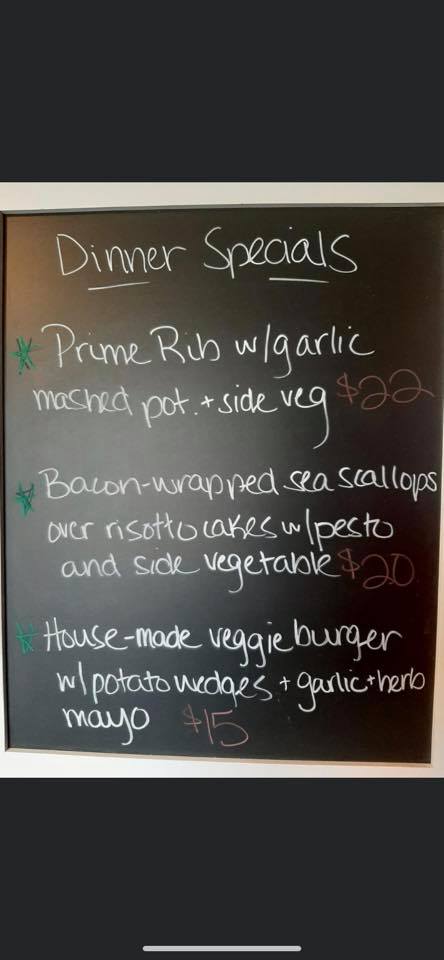 Dinner Specials
* Prime Rib w/garlic
mashed pot. + side veg $22
* Bacon-wrapped sea scallops
over risotto cakes w/pesto
and side vegetable $20
* House-made veggie burger
w/potato wedges + garlic + herb
mayo $15